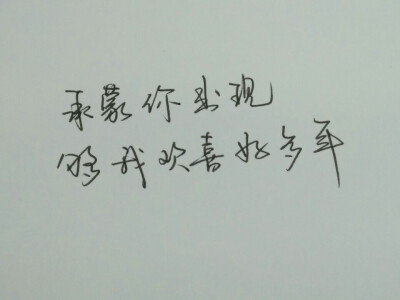 承蒙你出现
够我欢喜好多年